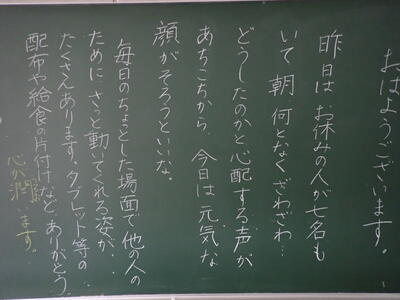 おはようございます。
昨日はお休みの人が七名も
いて朝、何となくざわざわ…
どうしたのかと心配する声が
あちこちから。今日は元気な
顔がそろうといいな。
毎日のちょっとした場面で他の人の
ためにさっと動いてくれる姿が、
たくさんあります。タブレット等の
配布や給食の片付けなど、ありがとう。
心が潤います。